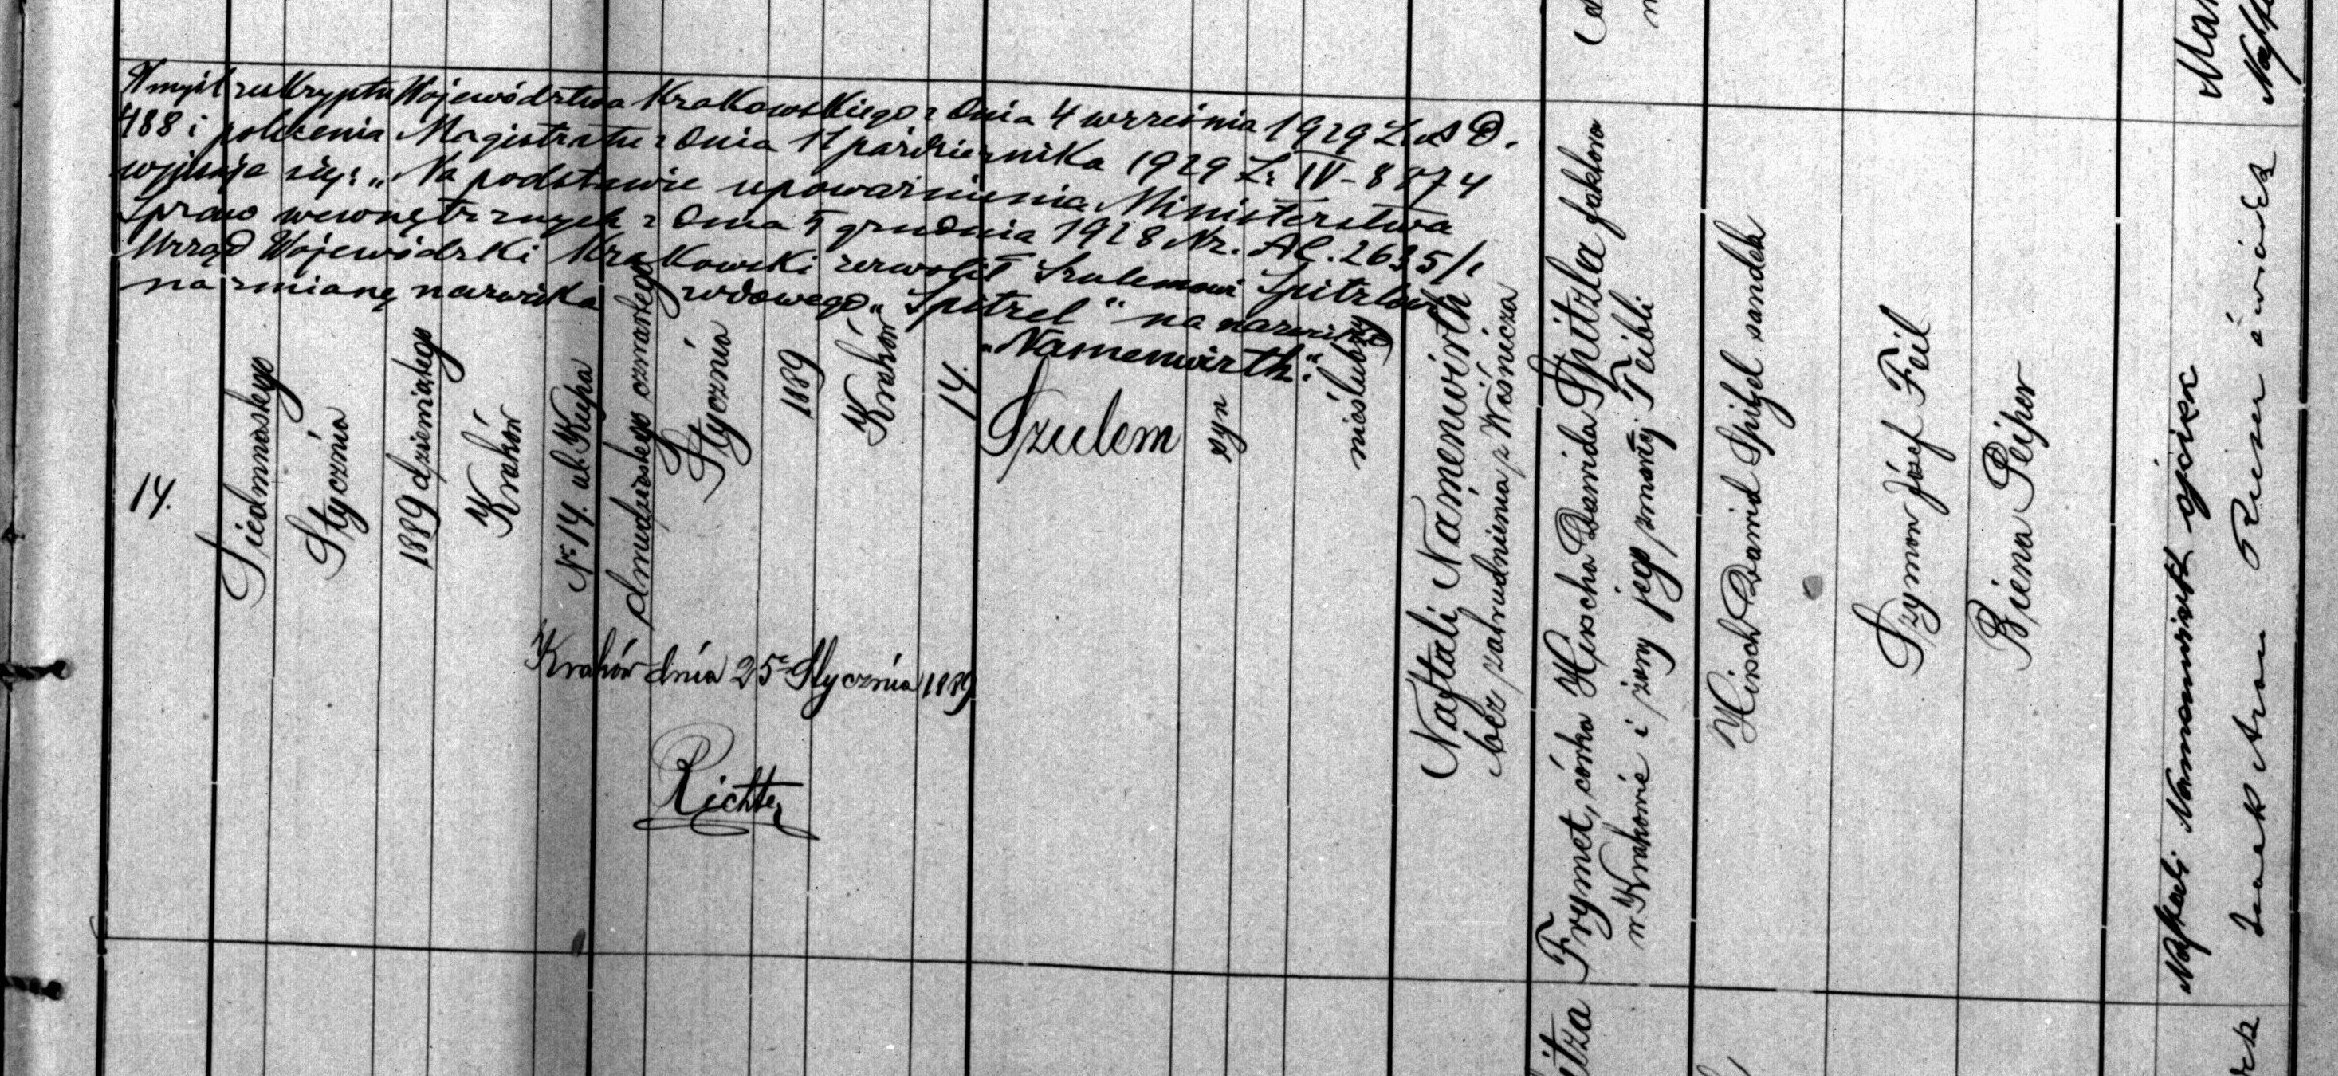 W myśl reskryptu Województwa Krakowskiego z dnia 4 września 1929 L. AD.
488 i polecenia Magistratu z dnia 11 października 1929 L: IV-8874
wpisuje się: „Na podstawie upoważnienia Ministerstwa
Spraw wewnętrznych z dnia 5 grudnia 1928 Nr. AC. 2635/1
Urząd Wojewódzki Krakowski zezwolił Szulemowi Spitzlowi
na zmianę nazwiska rodowego „Spitzel" na nazwisko
„Namenwirth".
14.
Siedmnastego
Stycznia
1889 dziewiątego
Kraków
Nr 14. ul. Kupa
dwudziestego czwartego
Stycznia
1889
Kraków
14.
Szulem
syn
nieślubny
Naftali Namenwirth
bez zatrudnienia z Wiśnicza
Frymet, córka Hirscha Dawida Spitzla faktora
w Krakowie i żony jego prawej Feibli
Hirsch Dawid Spitzel sandek
Szymon Józef Feil
Biena Peiper
Naftali Namenwirth ojciec
Izaak Aron świadek
Kraków dnia 25go Stycznia 1889
Richter